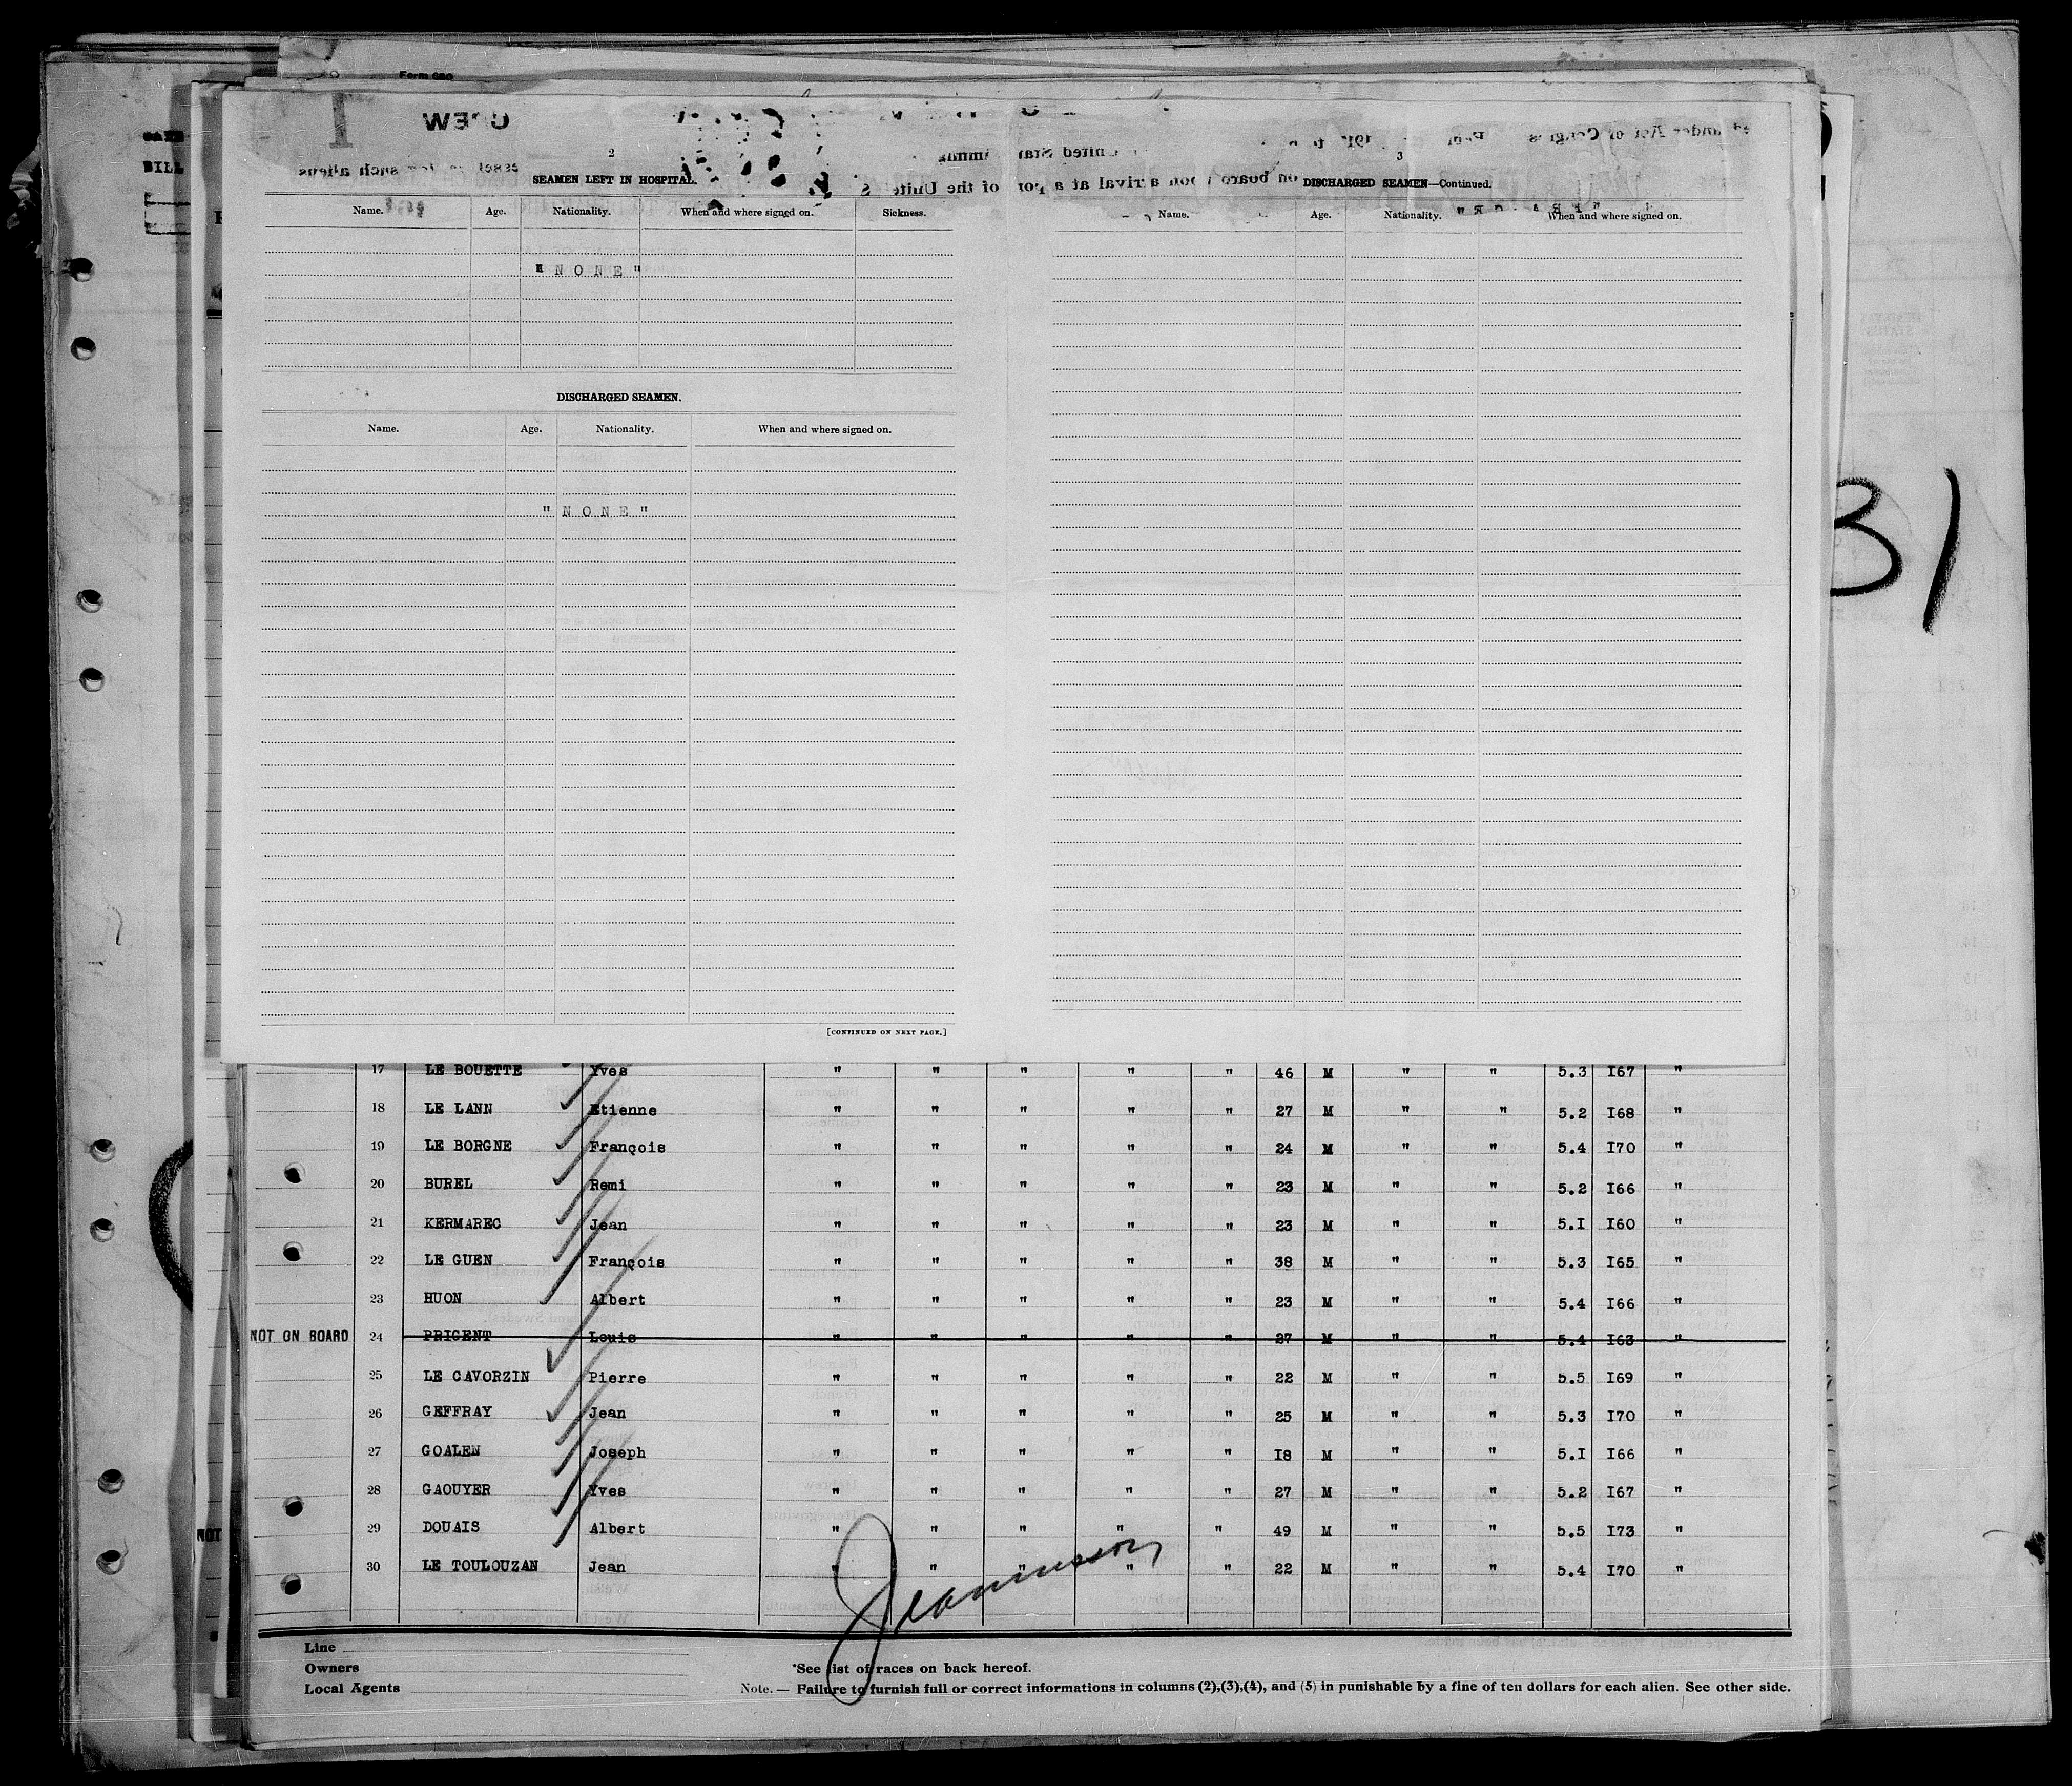 Form 680
BILL
2
SEAMEN LEFT IN HOSPITAL.
Name. Age. Nationality. When and where signed on. Sickness.
" N O N E "
DISCHARGED SEAMEN.
Name. Age. Nationality. When and where signed on.
" N O N E "
[CONTINUED ON NEXT PAGE.]
3
DISCHARGED SEAMEN—Continued.
Name. Age. Nationality. When and where signed on.
31
17 LE BOUETTE Yves " " " " " 46 M " " 5.3 I67 "
18 LE LANN Etienne " " " " " 27 M " " 5.2 I68 "
19 LE BORGNE François " " " " " 24 M " " 5.4 I70 "
20 BUREL Remi " " " " " 23 M " " 5.2 I66 "
21 KERMAREC Jean " " " " " 23 M " " 5.I I60 "
22 LE GUEN François " " " " " 38 M " " 5.3 I65 "
23 HUON Albert " " " " " 23 M " " 5.4 I66 "
NOT ON BOARD 24 PRIGENT Louis " " " " " 27 M " " 5.4 I63 "
25 LE CAVORZIN Pierre " " " " " 22 M " " 5.5 I69 "
26 GEFFRAY Jean " " " " " 25 M " " 5.3 I70 "
27 GOALEN Joseph " " " " " I8 M " " 5.I I66 "
28 GAOUYER Yves " " " " " 27 M " " 5.2 I67 "
NOT
29 DOUAIS Albert " " " " " 49 M " " 5.5 I73 "
30 LE TOULOUZAN Jean " " " " " 22 M " " 5.4 I70 "
Line
Owners
Local Agents
*See list of races on back hereof.
Note. — Failure to furnish full or correct informations in columns (2),(3),(4), and (5) in punishable by a fine of ten dollars for each alien. See other side.